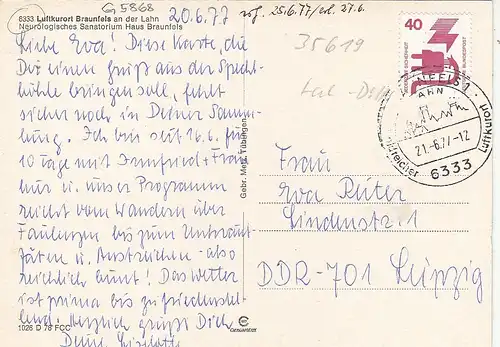 G 5868
8333 Luftkurort Braunfels an der Lahn
Neurologisches Sanatorium Haus Braunfels
20.6.77
25.6.77
27.6.
35619
Liebe Eva! Diese Karte, die
Dir einen Gruß aus der Specht-
höhle bringen soll, fehlt
sicher noch in Deiner Samm-
lung. Ich bin seit 16.6. für
10 Tage mit Irmfried + Frau
hier u. unser Programm
reicht vom Wandern über
Faulenzen bis zum Unkraut-
jäten u. Anstreichen - also
reichlich bunt! Das Wetter
ist prima bis zufriedenstel-
lend. Herzlich grüßt Dich
Deine Liselotte
Gebr. Metz, Tübingen
40
DEUTSCHE BUNDESPOST
21.-6.77-12
6333
Luftkurort
Frau
Eva Reuter
Lindenstr. 1
DDR-701 Leipzig
1026 D 76 FCC